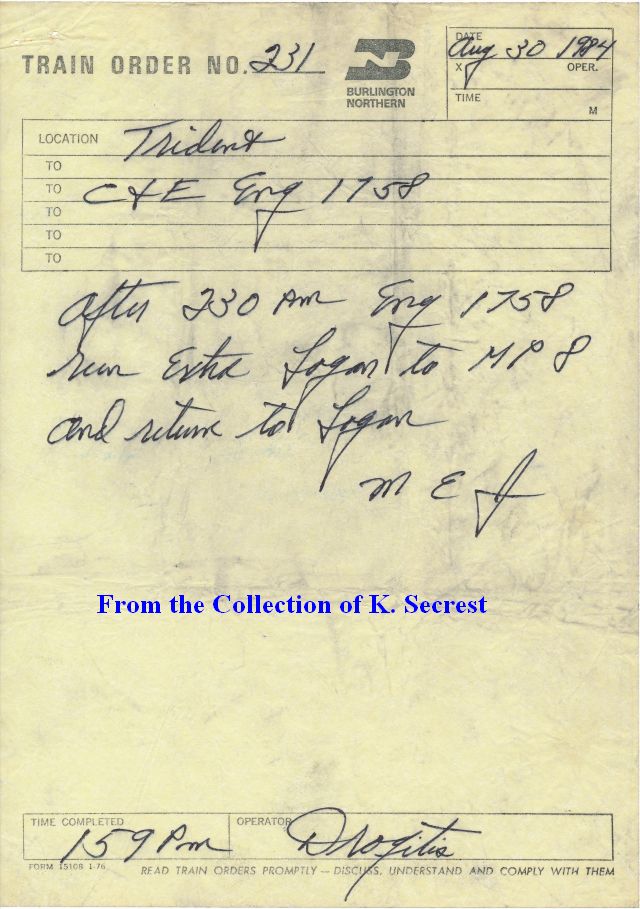 TRAIN ORDER NO. 231
BURLINGTON
NORTHERN
DATE
Aug 30 1984
X OPER.
TIME
M
LOCATION Trident
TO
TO C&E Eng 1758
TO
TO
TO
After 230 Pm Eng 1758
run Extra Logan to MP 8
and return to Logan
M E J
From the Collection of K. Secrest
TIME COMPLETED
159 Pm
OPERATOR
FORM 15108 1-76
READ TRAIN ORDERS PROMPTLY — DISCUSS, UNDERSTAND AND COMPLY WITH THEM